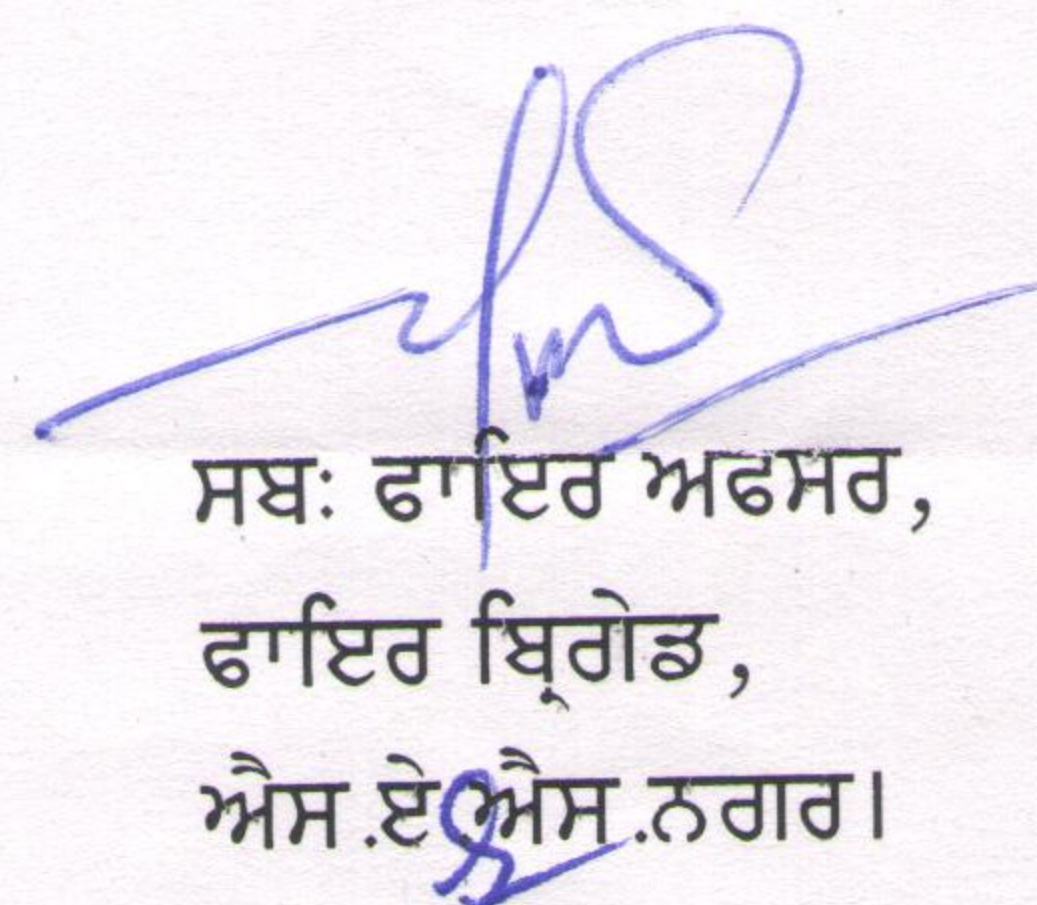 ਸਬਃ ਫਾਇਰ ਅਫਸਰ,
ਫਾਇਰ ਬ੍ਰਿਗੇਡ,
ਐਸ.ਏ.ਐਸ.ਨਗਰ।